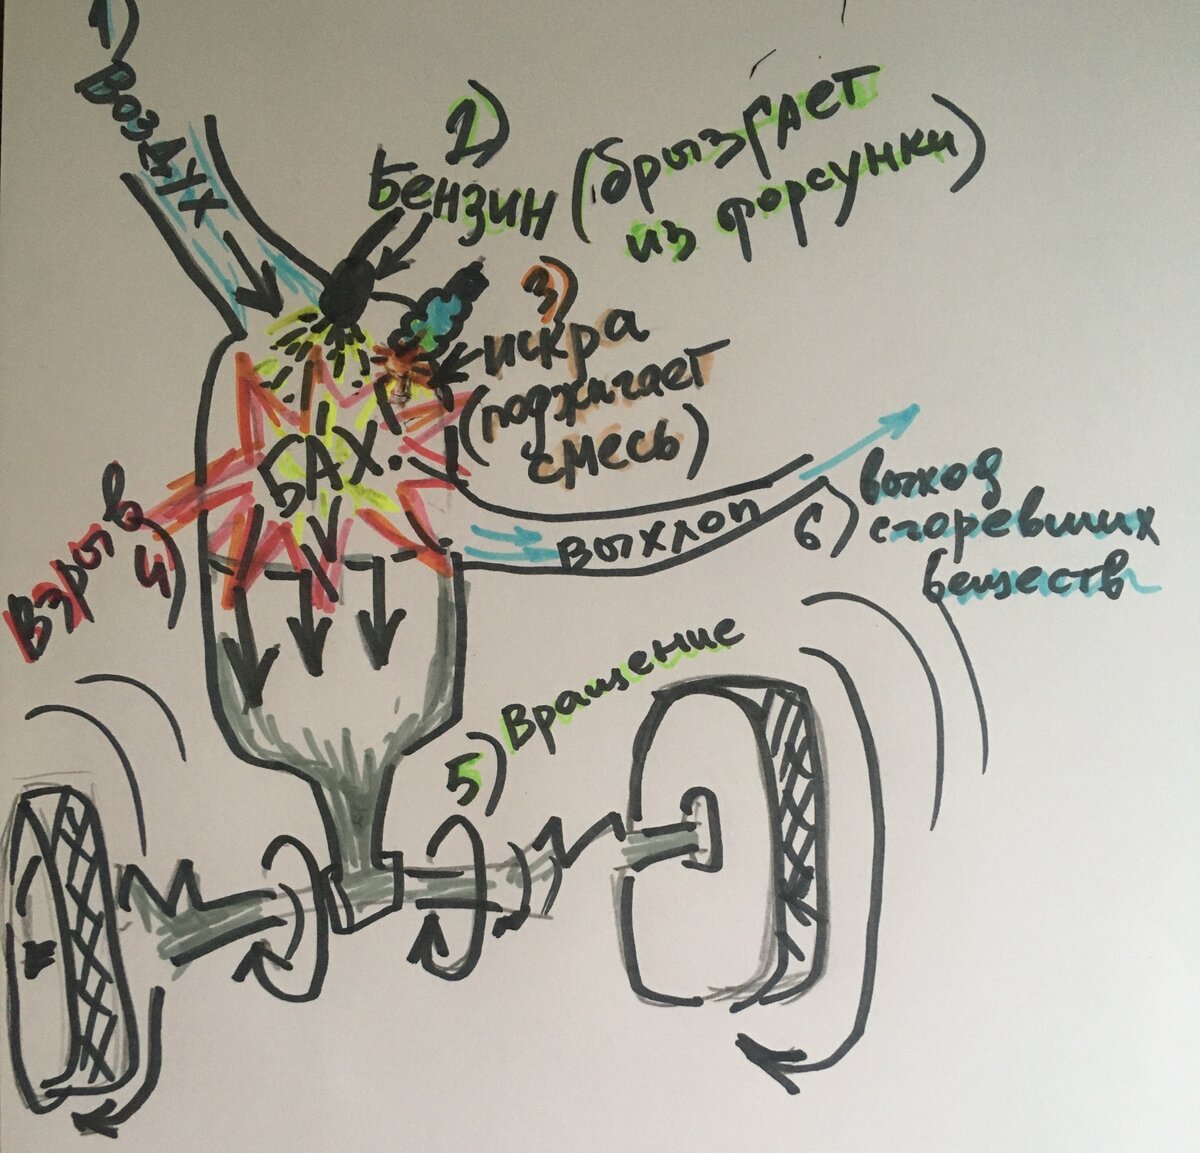 1)
Воздух
2)
Бензин (брызгает
из форсунки)
3)
искра
(поджигает
смесь)
БАХ!
Взрыв
4)
выхлоп
6) выход
сгоревших
веществ
5) Вращение